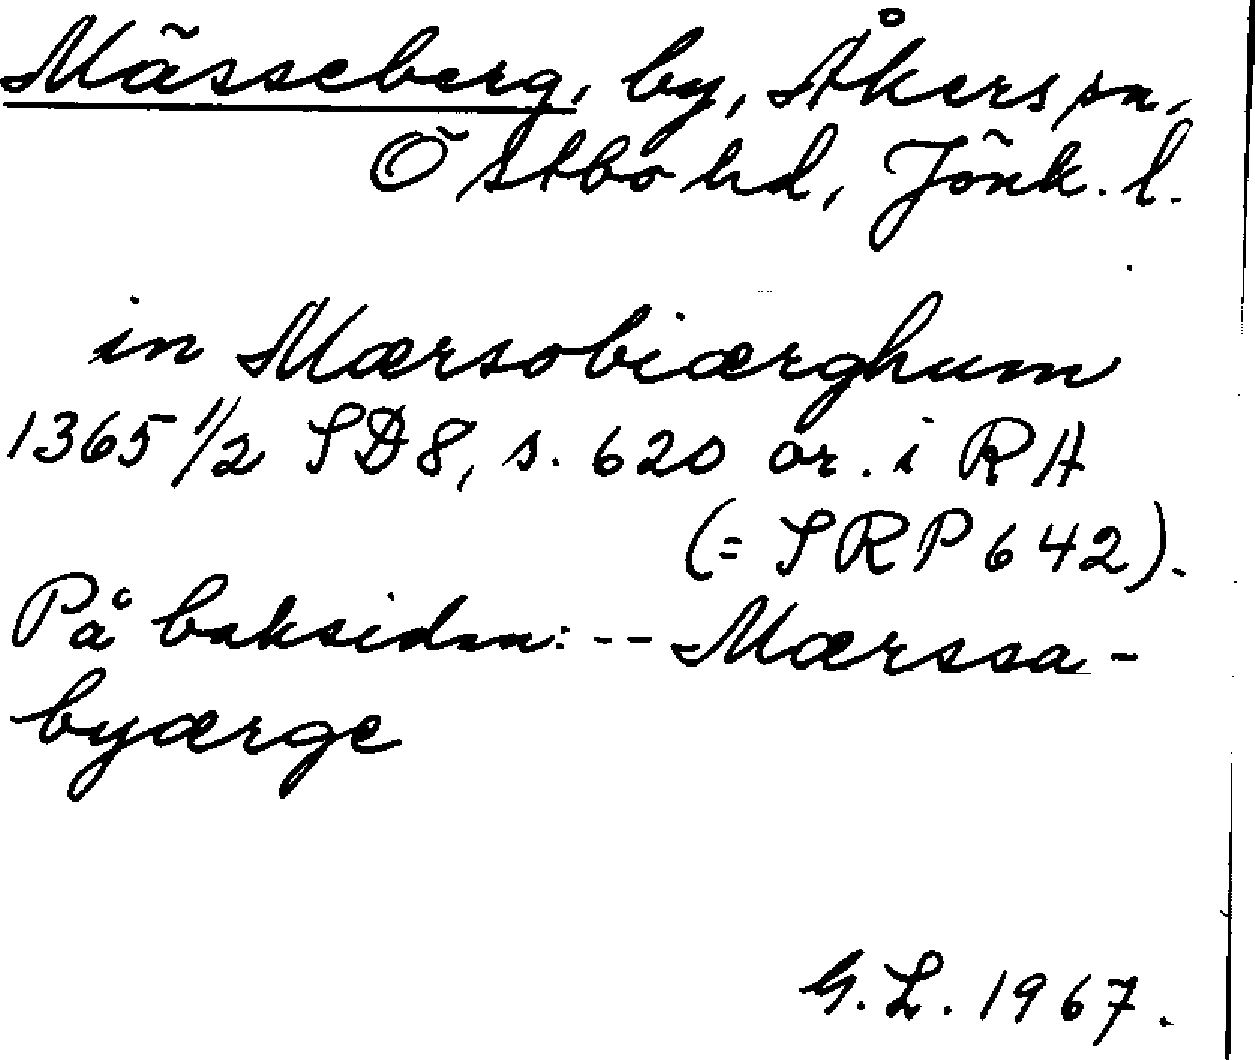 Mässeberg, by, Åkers sn,
Östbo hd, Jönk. l.
in Mærsobiærghum
1365 1/2 SD8, s. 620 or. i RA
(= SRP 642).
På baksidan: -- Mærssa-
byærge
G.L. 1967.